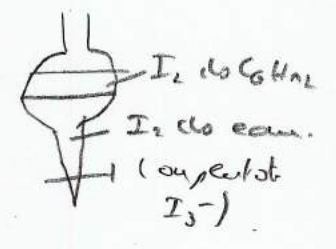 I₂ ds C₆H₁₂
I₂ ds eau.
(ou plutôt
I₃⁻)